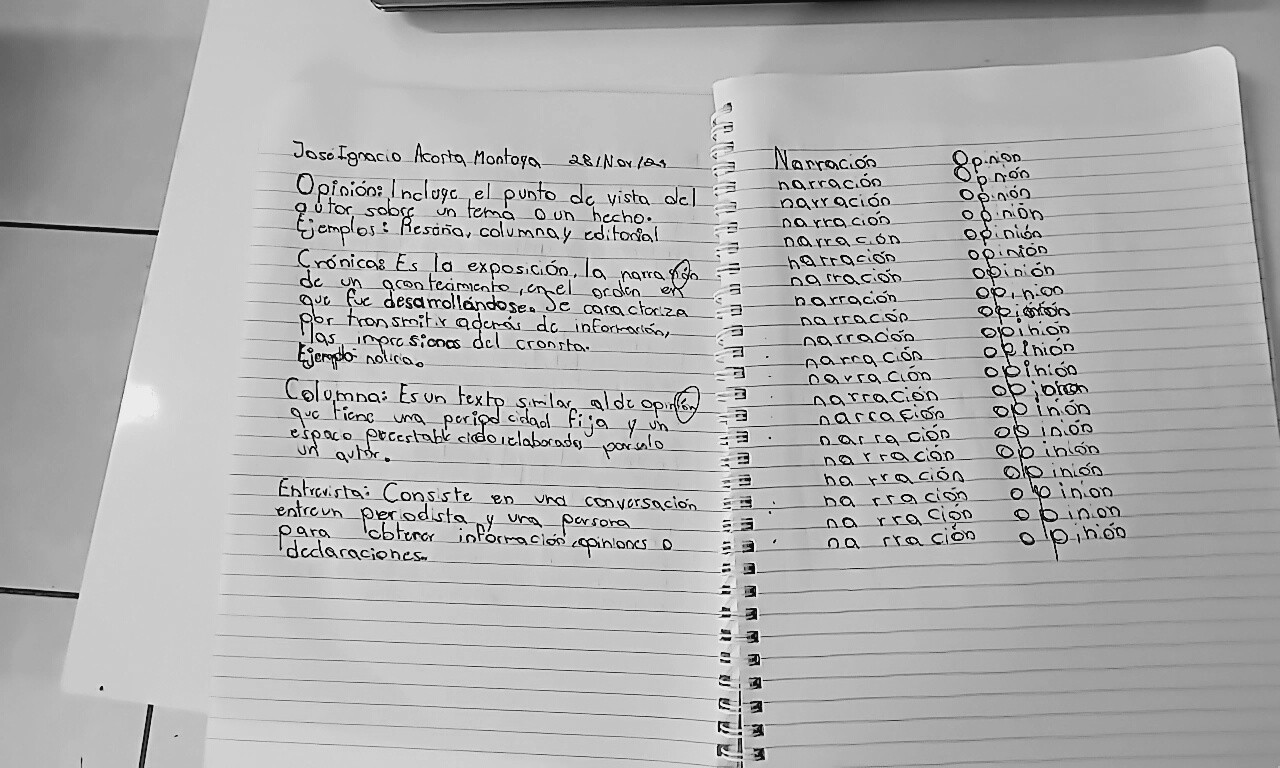 José Ignacio Acosta Montoya 28/Nov/21
Opinión: Incluye el punto de vista del
autor sobre un tema o un hecho.
Ejemplos: Reseña, columna y editorial
Crónicas Es la exposición, la narración
de un acontecimiento, en el orden en
que fue desarrollándose. Se caracteriza
por transmitir además de información,
las impresiones del cronista.
Ejemplo noticia.
Columna: Es un texto similar al de opinión
que tiene una periodicidad fija y un
espacio preestablecido elaborados por solo
un autor.
Entrevista: Consiste en una conversación
entre un periodista y una persona
para obtener información, opiniones o
declaraciones.
Narración Opinion
narración Opinión
narración opinión
narración opinión
narración opinión
narración opinión
narración opinión
narración opinion
narración opinión
narración opinión
narración opinión
narración opinión
narración opinion
narración opinión
narración opinión
narración opinión
narración opinión
narración opinion
narración opinion
narración opinión